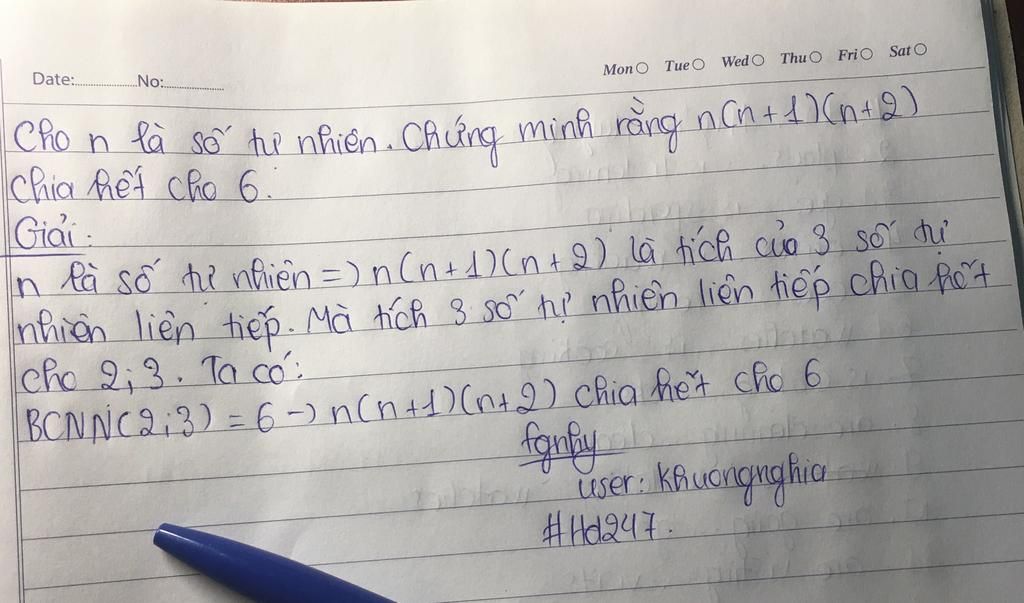 Date:..................No:..................
Mon Tue Wed Thu Fri Sat
Cho n là số tự nhiên. Chứng minh rằng n(n+1)(n+2)
chia hết cho 6.
Giải:
n là số tự nhiên => n(n+1)(n+2) là tích của 3 số tự
nhiên liên tiếp. Mà tích 3 số tự nhiên liên tiếp chia hết
cho 2;3. Ta có:
BCNN(2;3) = 6 -> n(n+1)(n+2) chia hết cho 6
fgnhy
user: khuongnghia
#Hd247.